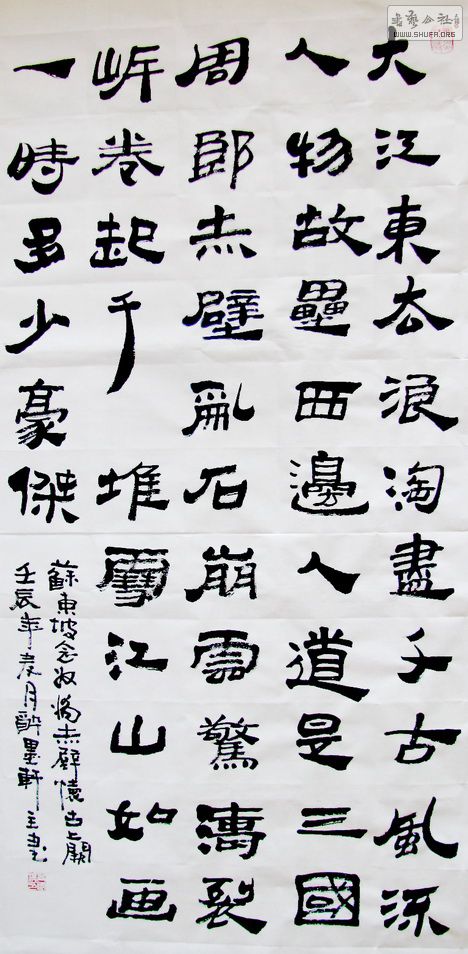 大江東去浪淘盡千古風流
人物故壘西邊人道是三國
周郎赤壁亂石崩雲驚濤裂
岸卷起千堆雪江山如画
一時多少豪傑
蘇東坡念奴嬌赤壁懷古上闕
壬辰年月醉墨軒主書
書藝公社
WWW.SHUFA.ORG